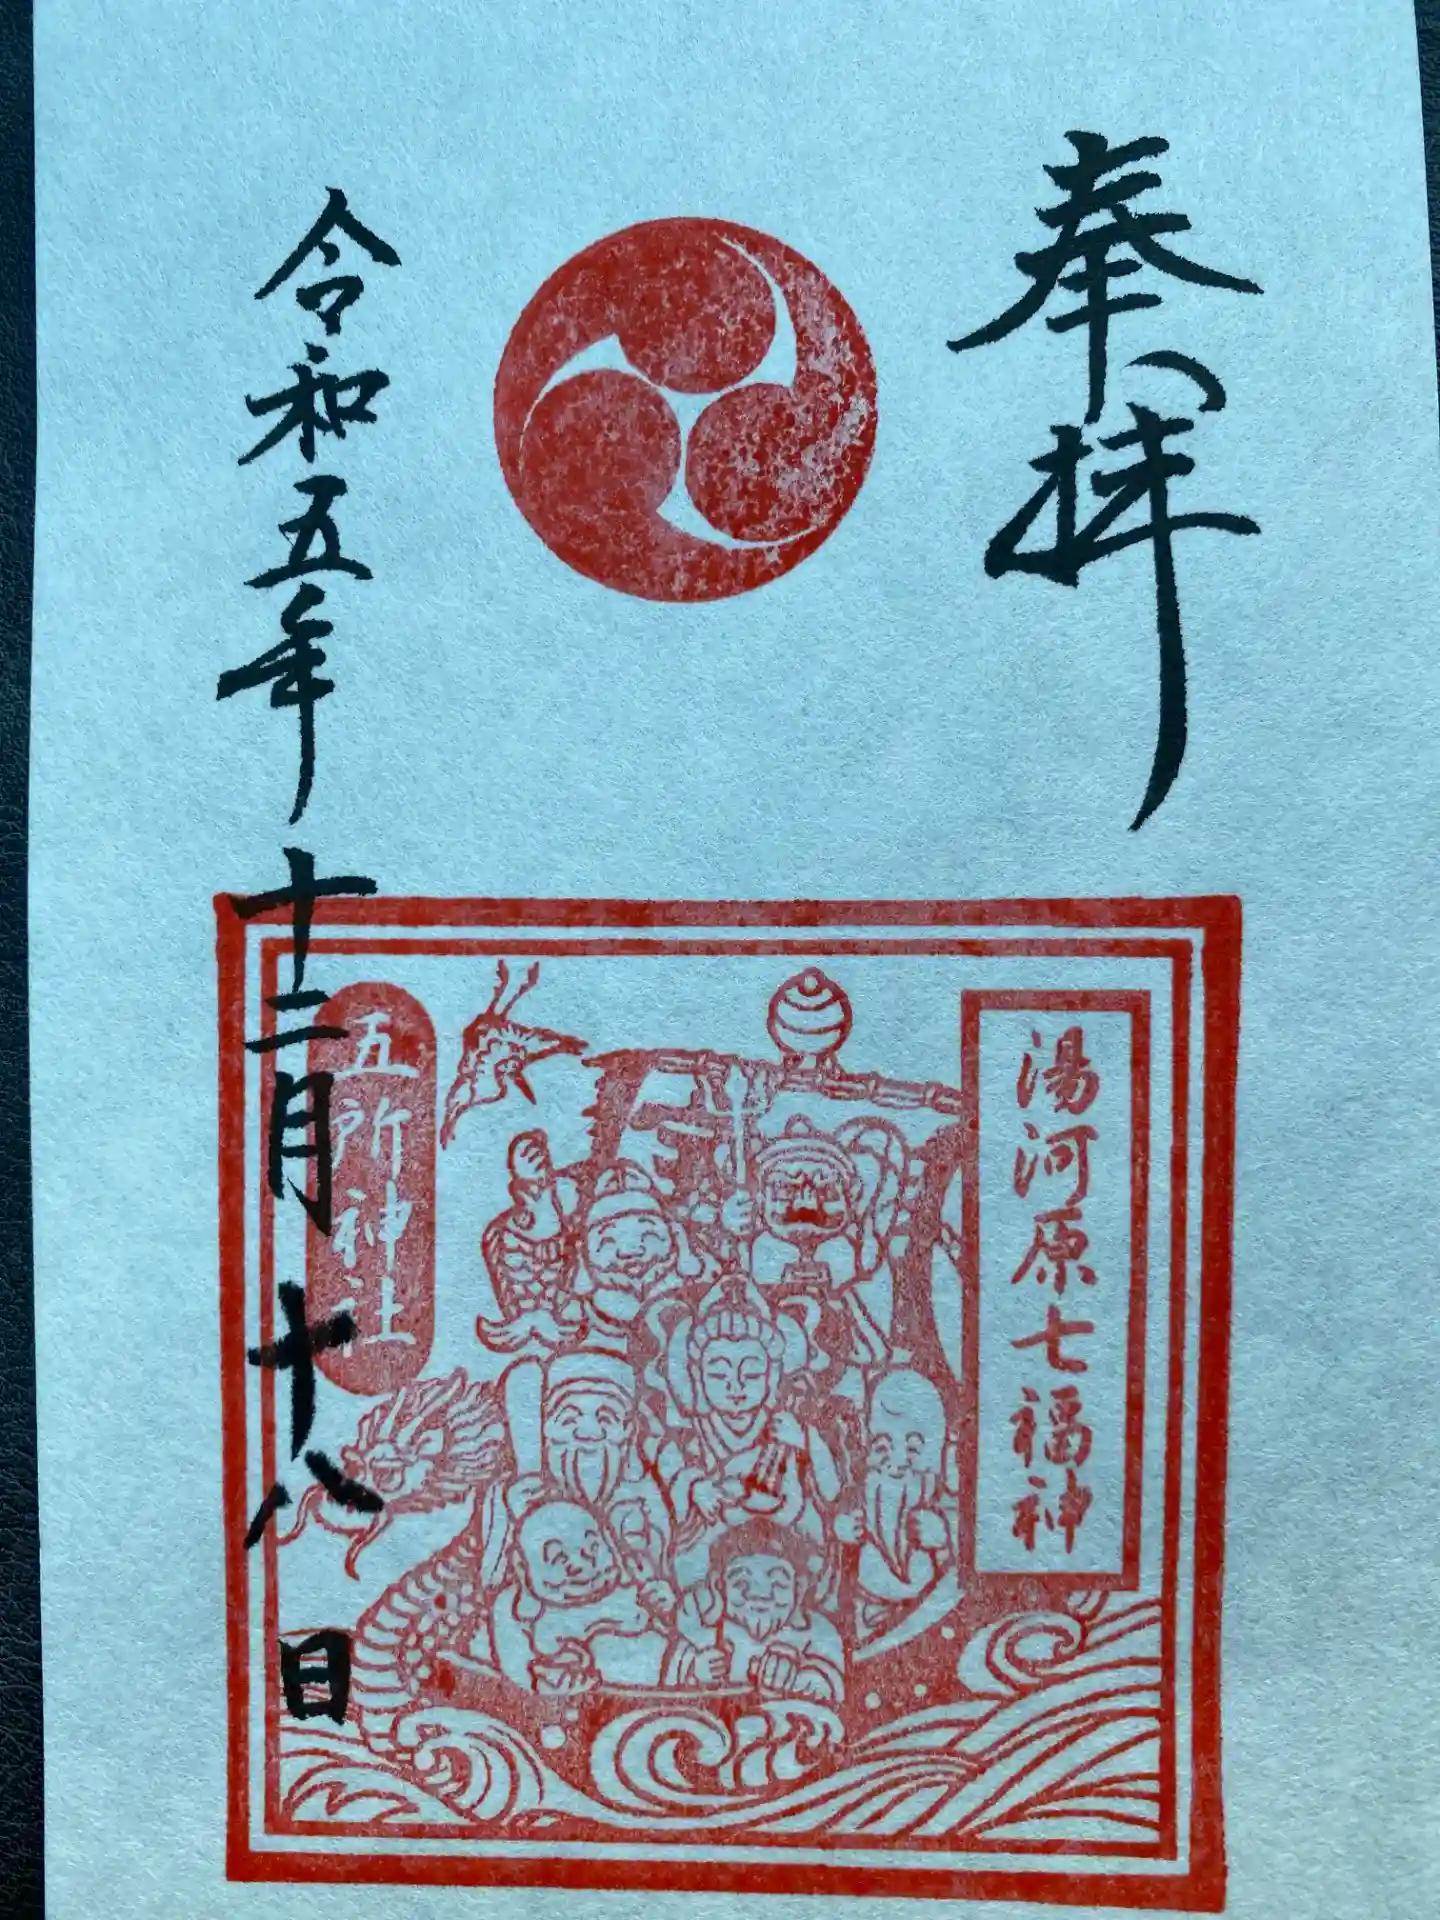 奉拝
湯河原七福神
五所神社
令和五年十二月十八日